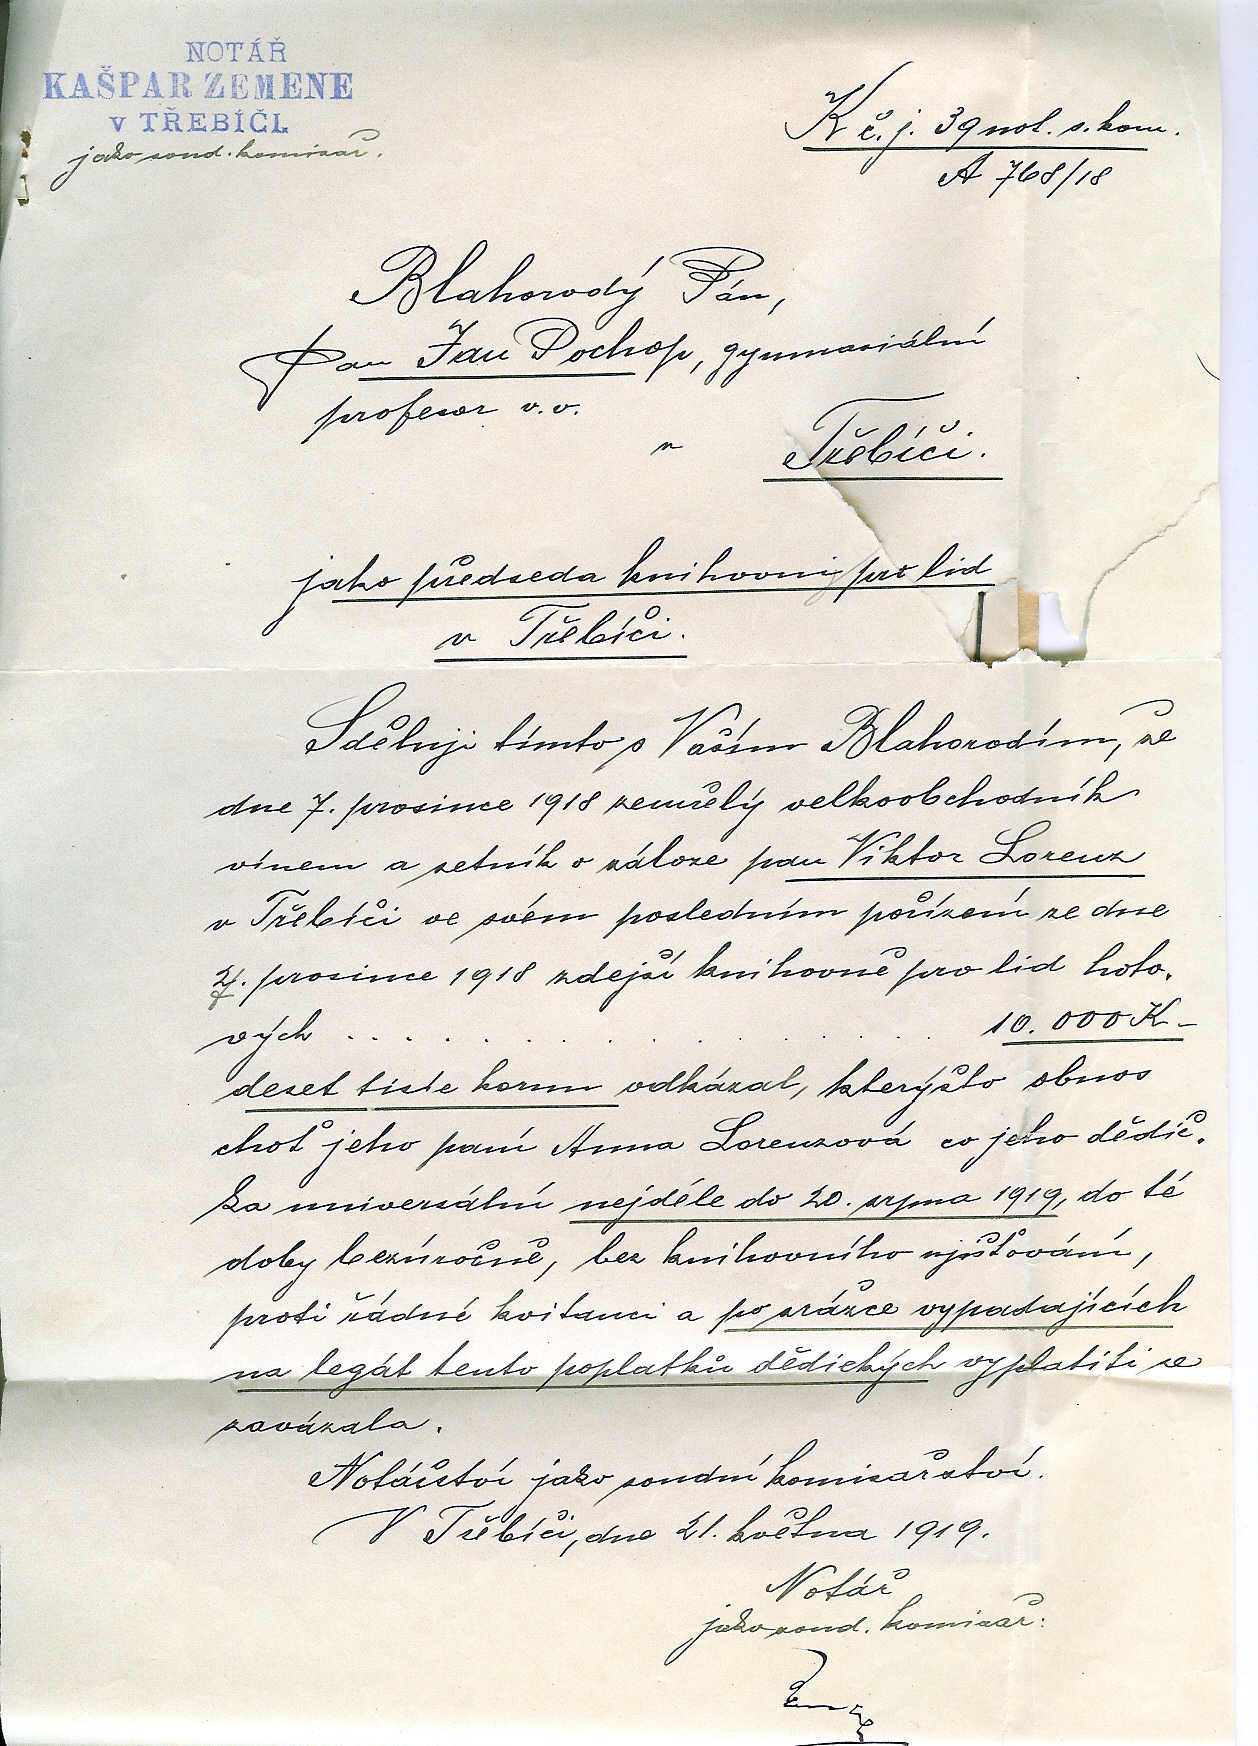 NOTÁŘ
KAŠPAR ZEMENE
V TŘEBÍČI.
jako soud. komisař.
K č. j. 39 not. s. kom.
A 768/18
Blahorodý Pán,
Pan Jan Pochop, gymnasiální
profesor v. v.
v Třebíči.
jako předseda knihovny pro lid
v Třebíči.
Sděluji tímto s Vaším Blahorodím, že
dne 7. prosince 1918 zemřelý velkoobchodník
vínem a setník v záloze pan Viktor Lorenz
v Třebíči ve svém posledním pořízení ze dne
prosince 1918 zdejší knihovně pro lid hoto-
vých . . . . . . . . . . . . . . 10.000 K -
deset tisíc korun odkázal, kterýžto obnos
choť jeho paní Anna Lorenzová co jeho dědič-
ka universální nejdéle do 20. srpna 1919, do té
doby bezúročně, bez knihovního ujišťování,
proti řádné kvitanci a po srážce vypadajících
na legát tento poplatků dědických vyplatiti se
zavázala.
Notářství jako soudní komisařství.
V Třebíči, dne 21. května 1919.
Notář
jako soud. komisař: